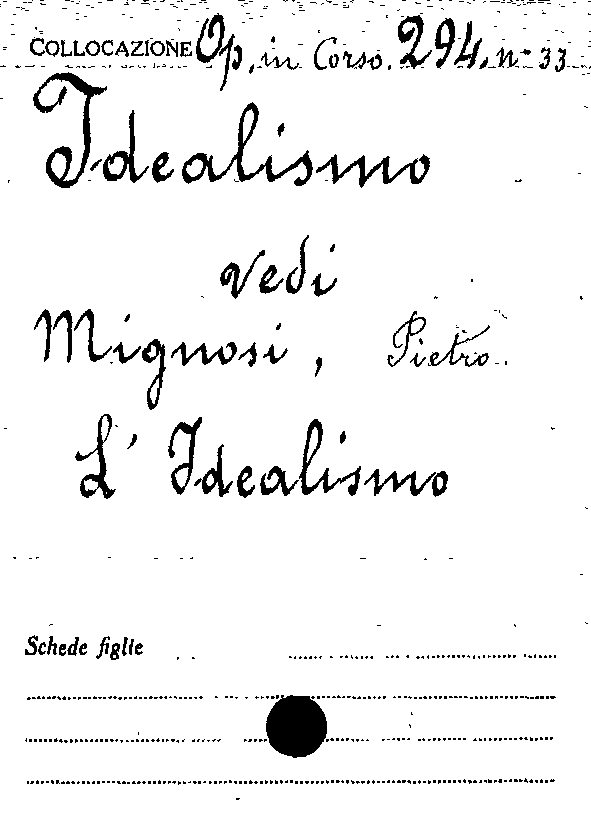 COLLOCAZIONE Op. in Corso. 294. n- 33
Idealismo
vedi
Mignosi, Pietro.
L' Idealismo
Schede figlie